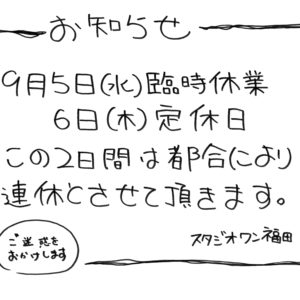 お知らせ
9月5日(水)臨時休業
6日(木)定休日
この2日間は都合により
連休とさせて頂きます。
ご迷惑を
おかけします
スタジオワン福田